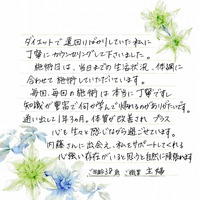 ダイエットで遠回りばかりしていた私に
丁寧にカウンセリングして下さいました。
施術日は、当日までの生活状況、体調に
合わせて施術していただいています。
毎回、毎回の施術は 本当に丁寧ですし
知識が豊富で何か学んで帰れるのがありがたいです。
通い出して1年3ヶ月。体質が改善され プラス
心も生々と感じながら過ごせています。
内藤さんに出会え、私をサポートしてくれる
心強い存在がいると思うと自然に頑張れます
ご年齢 38歳 ご職業 主婦